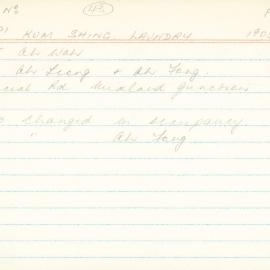 Nº (43)
KUM SHING LAUNDRY 190
Ah Wah
Ah Leong & Ah Fong.
Rd Midland Junction
Changed in occupancy.
" Ah Fong